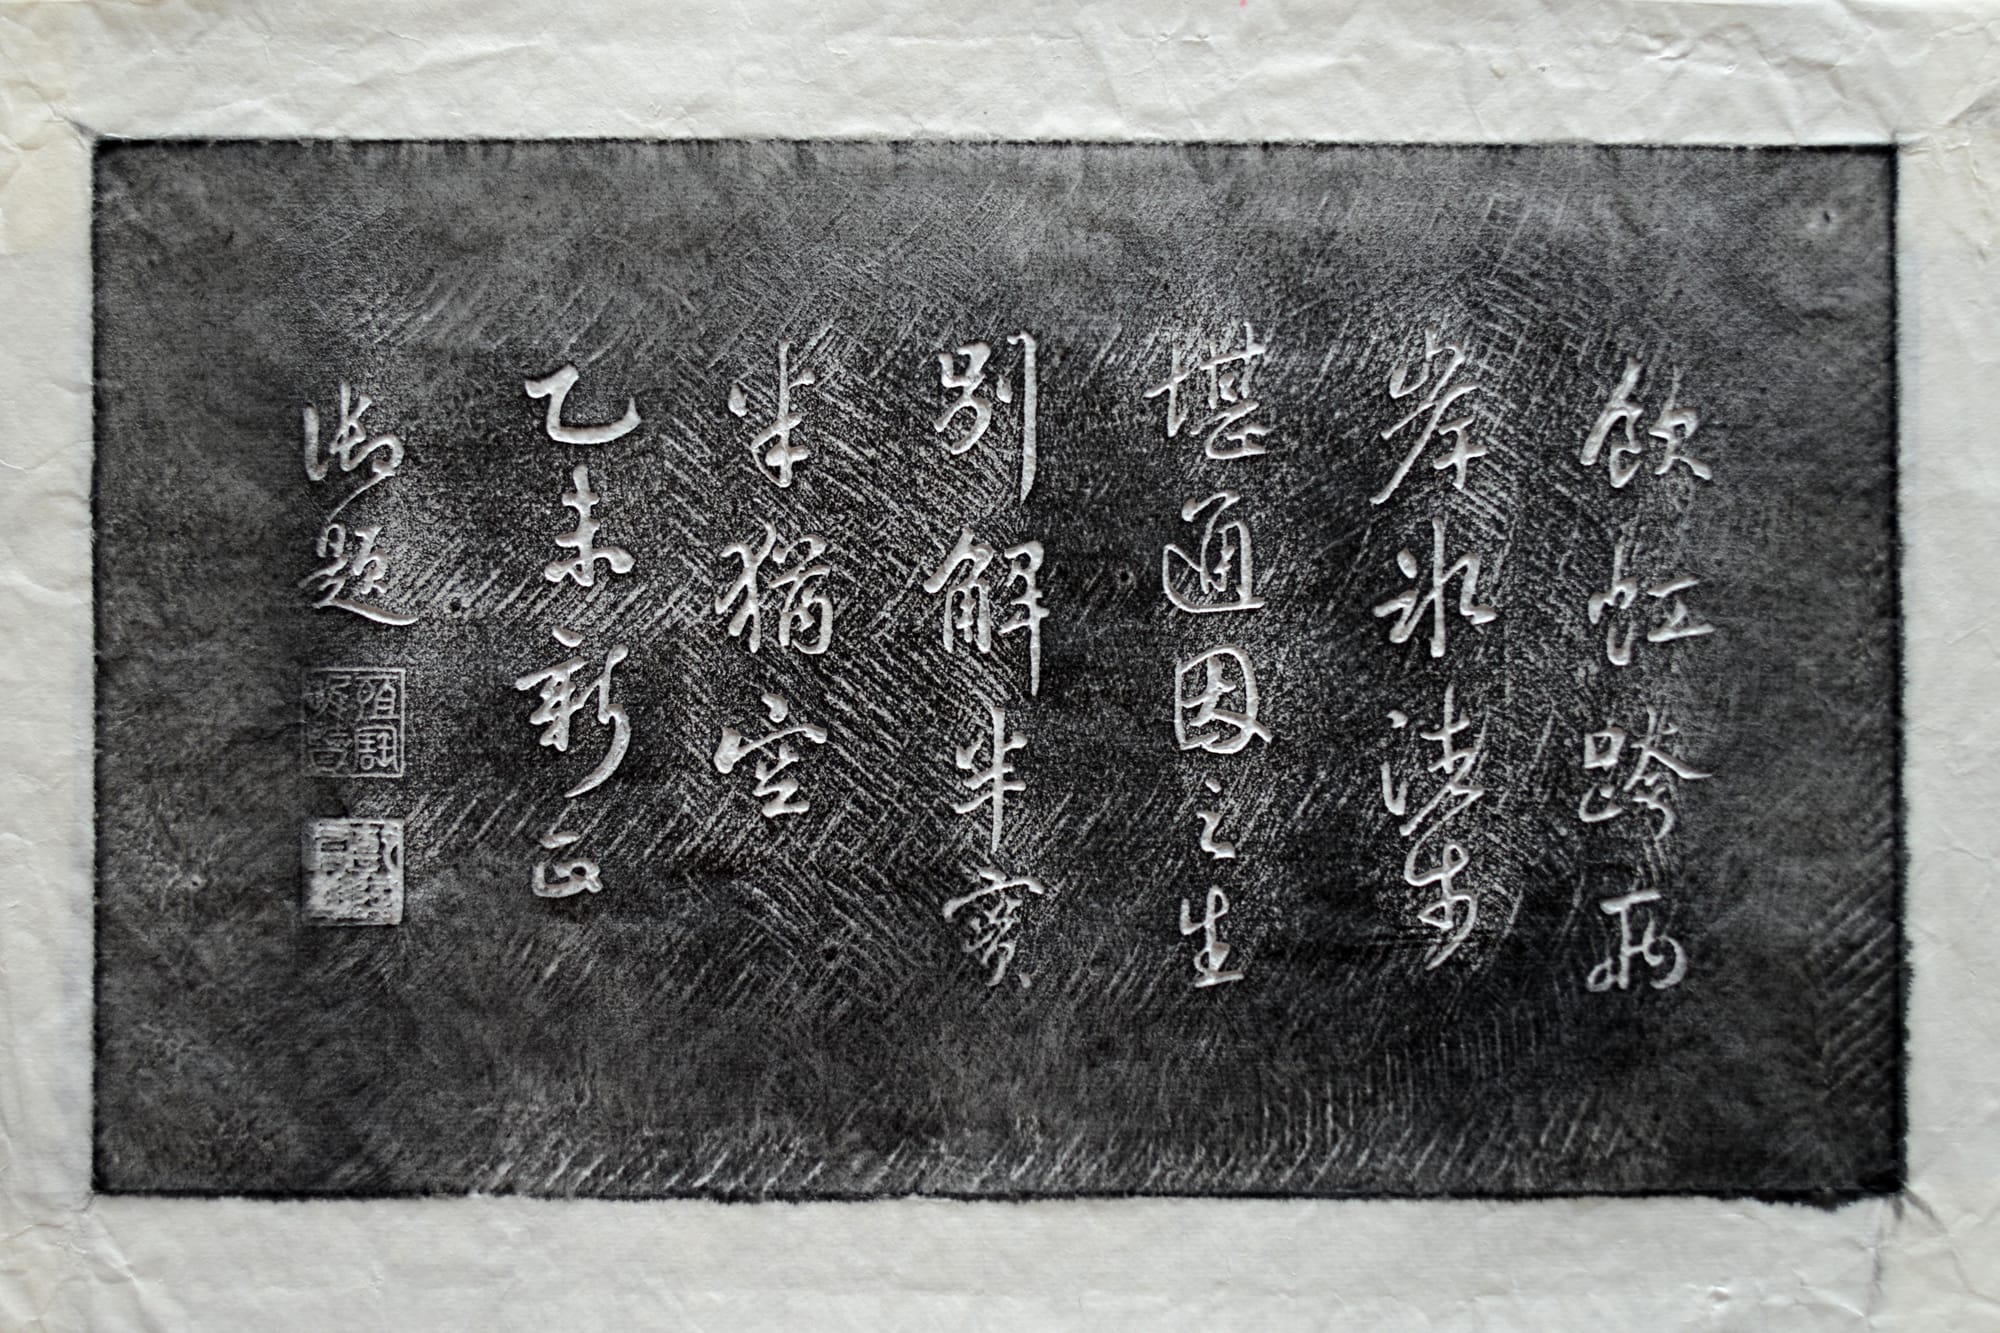 飲虹跨兩
岸冰渚步
堪通因之生
別解半實
半猶空
乙未新正
御題